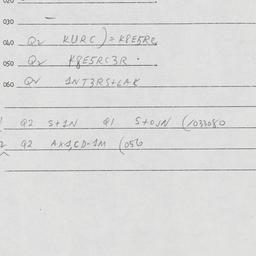 020
030 —
040 Qv KURC) = K8E5RC
050 Qv K8E5RC3R .
060 Qv 1NT3RS+LAK
Q2 S+1N Q1 S+0JN (1033080
2 Q2 A×1,CD-1M (056